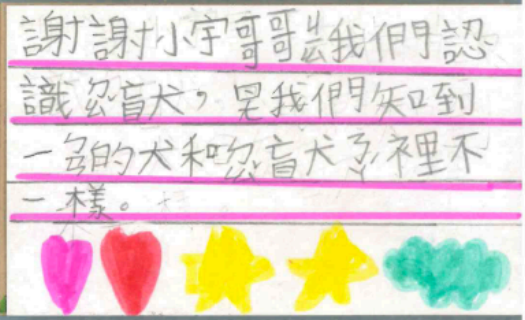 謝謝小宇哥哥我們認
識盲犬，我們知到
一的犬和盲犬裡不
一樣。